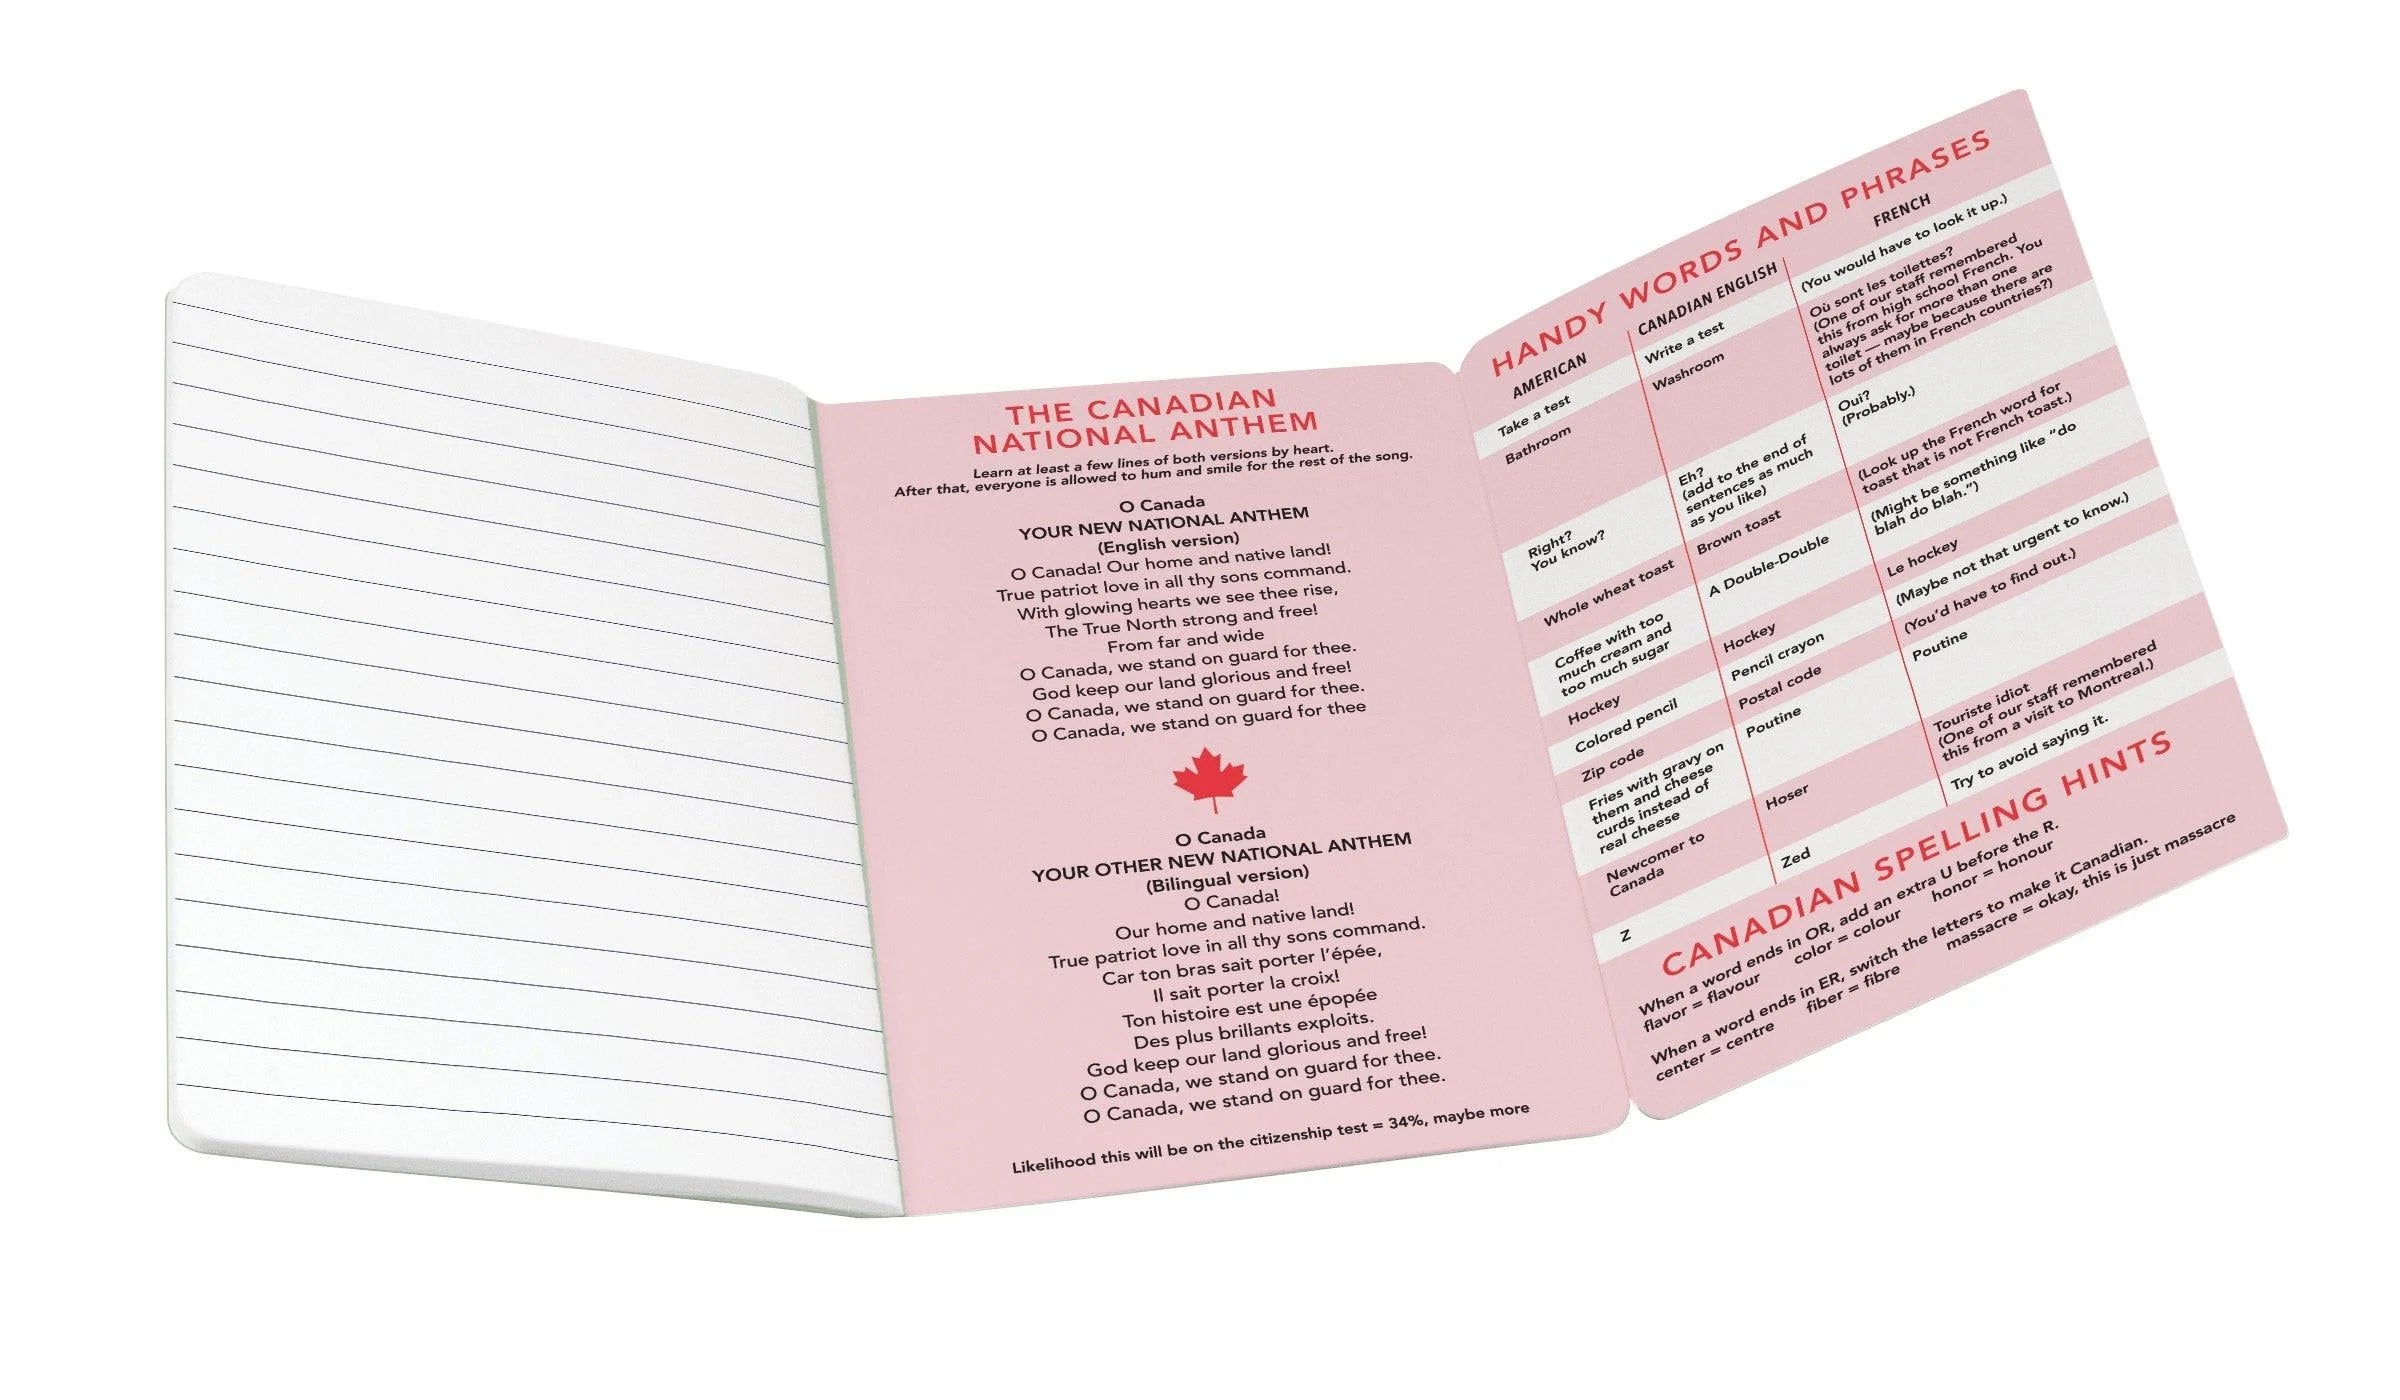 THE CANADIAN
NATIONAL ANTHEM
Learn at least a few lines of both versions by heart.
After that, everyone is allowed to hum and smile for the rest of the song.
O Canada
YOUR NEW NATIONAL ANTHEM
(English version)
O Canada! Our home and native land!
True patriot love in all thy sons command.
With glowing hearts we see thee rise,
The True North strong and free!
From far and wide
O Canada, we stand on guard for thee.
God keep our land glorious and free!
O Canada, we stand on guard for thee.
O Canada, we stand on guard for thee
O Canada
YOUR OTHER NEW NATIONAL ANTHEM
(Bilingual version)
O Canada!
Our home and native land!
True patriot love in all thy sons command.
Car ton bras sait porter l'épée,
Il sait porter la croix!
Ton histoire est une épopée
Des plus brillants exploits.
God keep our land glorious and free!
O Canada, we stand on guard for thee.
O Canada, we stand on guard for thee.
Likelihood this will be on the citizenship test = 34%, maybe more
HANDY WORDS AND PHRASES
AMERICAN
CANADIAN ENGLISH
FRENCH
Take a test
Write a test
(You would have to look it up.)
Bathroom
Washroom
Où sont les toilettes?
(One of our staff remembered
this from high school French. You
always ask for more than one
toilet — maybe because there are
lots of them in French countries?)
Right?
You know?
Eh?
(add to the end of
sentences as much
as you like)
Oui?
(Probably.)
Whole wheat toast
Brown toast
(Look up the French word for
toast that is not French toast.)
Coffee with too
much cream and
too much sugar
A Double-Double
(Might be something like "do
blah do blah.")
Hockey
Hockey
Le hockey
Colored pencil
Pencil crayon
(Maybe not that urgent to know.)
Zip code
Postal code
(You'd have to find out.)
Fries with gravy on
them and cheese
curds instead of
real cheese
Poutine
Poutine
Newcomer to
Canada
Hoser
Touriste idiot
(One of our staff remembered
this from a visit to Montreal.)
Z
Zed
Try to avoid saying it.
CANADIAN SPELLING HINTS
When a word ends in OR, add an extra U before the R.
flavor = flavour color = colour honor = honour
When a word ends in ER, switch the letters to make it Canadian.
center = centre fiber = fibre massacre = okay, this is just massacre